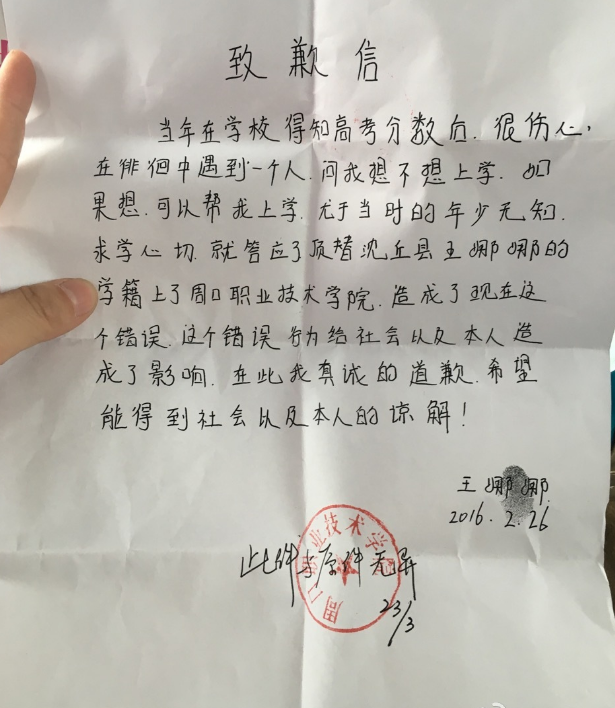 致歉信
当年在学校得知高考分数后.很伤心,
在徘徊中遇到一个人.问我想不想上学.如
果想.可以帮我上学.尤于当时的年少无知.
求学心切.就答应了顶替沈丘县王娜娜的
学籍上了周口职业技术学院.造成了现在这
个错误.这个错误行为给社会以及本人造
成了影响.在此我真诚的道歉.希望
能得到社会以及本人的谅解!
王娜娜
2016.2.26
周口职业技术学院
此件与原件无异
23/3